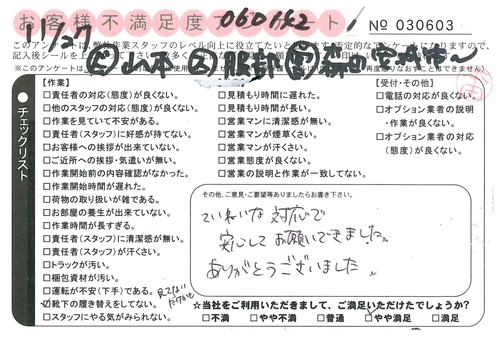 お客様不満足度アンケート
060142
No 030603
11/27
山本 服部 森山 宮城市〜
このアンケートは、弊社作業スタッフのレベル向上に役立てたいと
記入後シールを
(※このアンケートは
チェックリスト
【作業】
□責任者の対応(態度)が良くない。
□他のスタッフの対応(態度)が良くない。
□作業を見ていて不安がある。
□責任者(スタッフ)に好感が持てない。
□お客様への挨拶が出来ていない。
□ご近所への挨拶・気遣いが無い。
□作業開始前の内容確認がなかった。
□作業開始時間が遅れた。
□荷物の取り扱いが雑である。
□お部屋の養生が出来ていない。
□作業時間が長すぎる。
□責任者(スタッフ)に清潔感が無い。
□責任者(スタッフ)が汗くさい。
□トラックが汚い。
□梱包資材が汚い。
□運転が不安(下手)である。
□靴下の履き替えをしてない。
□スタッフにやる気がみられない。
【営業】
□見積もり時間に遅れた。
□見積もり時間が長い。
□営業マンに清潔感が無い。
□営業マンが煙草くさい。
□営業マンが汗くさい。
□営業態度が良くない。
□営業の説明と作業が一致してない。
【受付・その他】
□電話の対応が良くない。
□オプション業者の説明
・作業が良くない。
□オプション業者の対応
(態度)が良くない。
その他、ご意見・ご要望等ありましたらお書き下さい。
ていねいな対応で
安心してお願いできました。
ありがとうございました。
☆当社をご利用いただきまして、ご満足いただけたでしょうか?
□不満 □やや不満 □普通 □やや満足 □満足